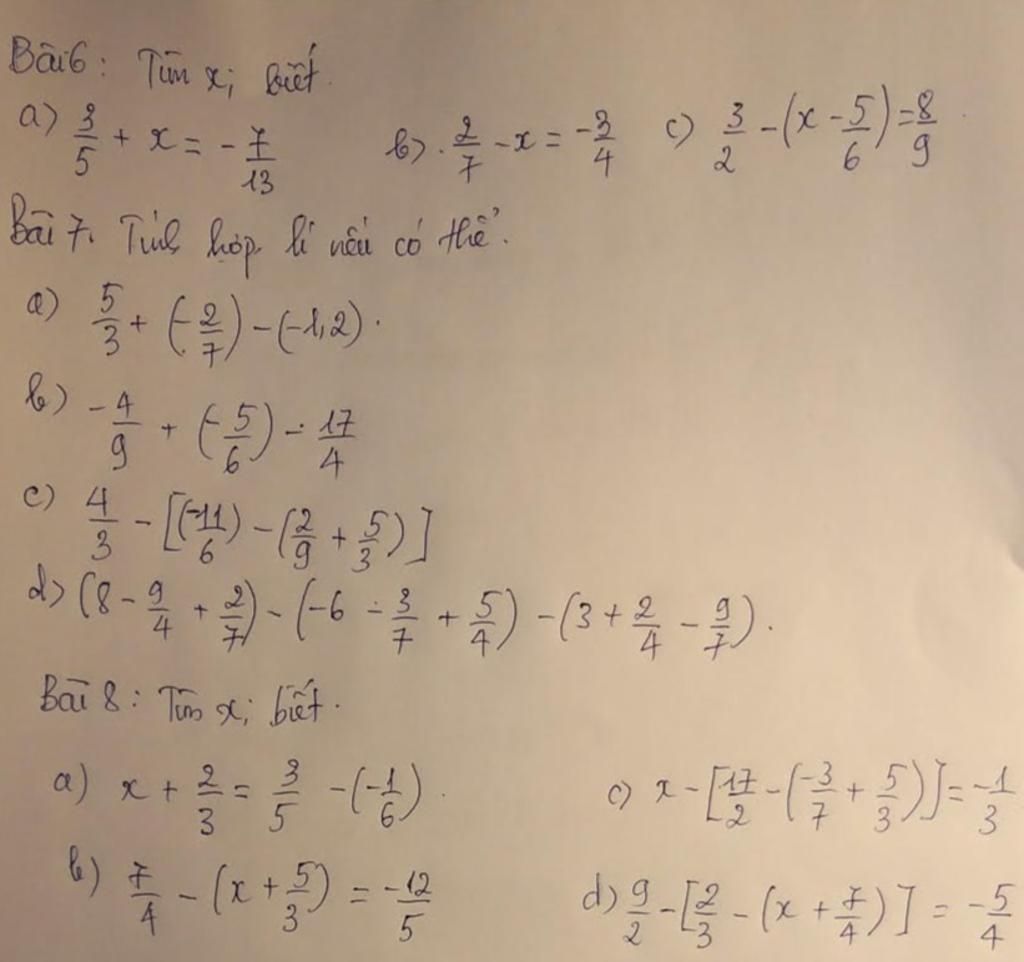 Bài 6: Tìm x; biết.
a) 3/5 + x = -7/13 b) 2/7 - x = -3/4 c) 3/2 - (x - 5/6) = 8/9
Bài 7. Tính hợp lí nếu có thể.
a) 5/3 + (-2/7) - (-1,2).
b) -4/9 + (-5/6) - 17/4
c) 4/3 - [(-11/6) - (2/9 + 5/3)]
d) (8 - 9/4 + 2/7) - (-6 - 3/7 + 5/4) - (3 + 2/4 - 9/7).
Bài 8: Tìm x; biết.
a) x + 2/3 = 3/5 - (-1/6). c) x - [17/2 - (-3/7 + 5/3)] = -1/3
b) 7/4 - (x + 5/3) = -12/5 d) 9/2 - [2/3 - (x + 7/4)] = -5/4